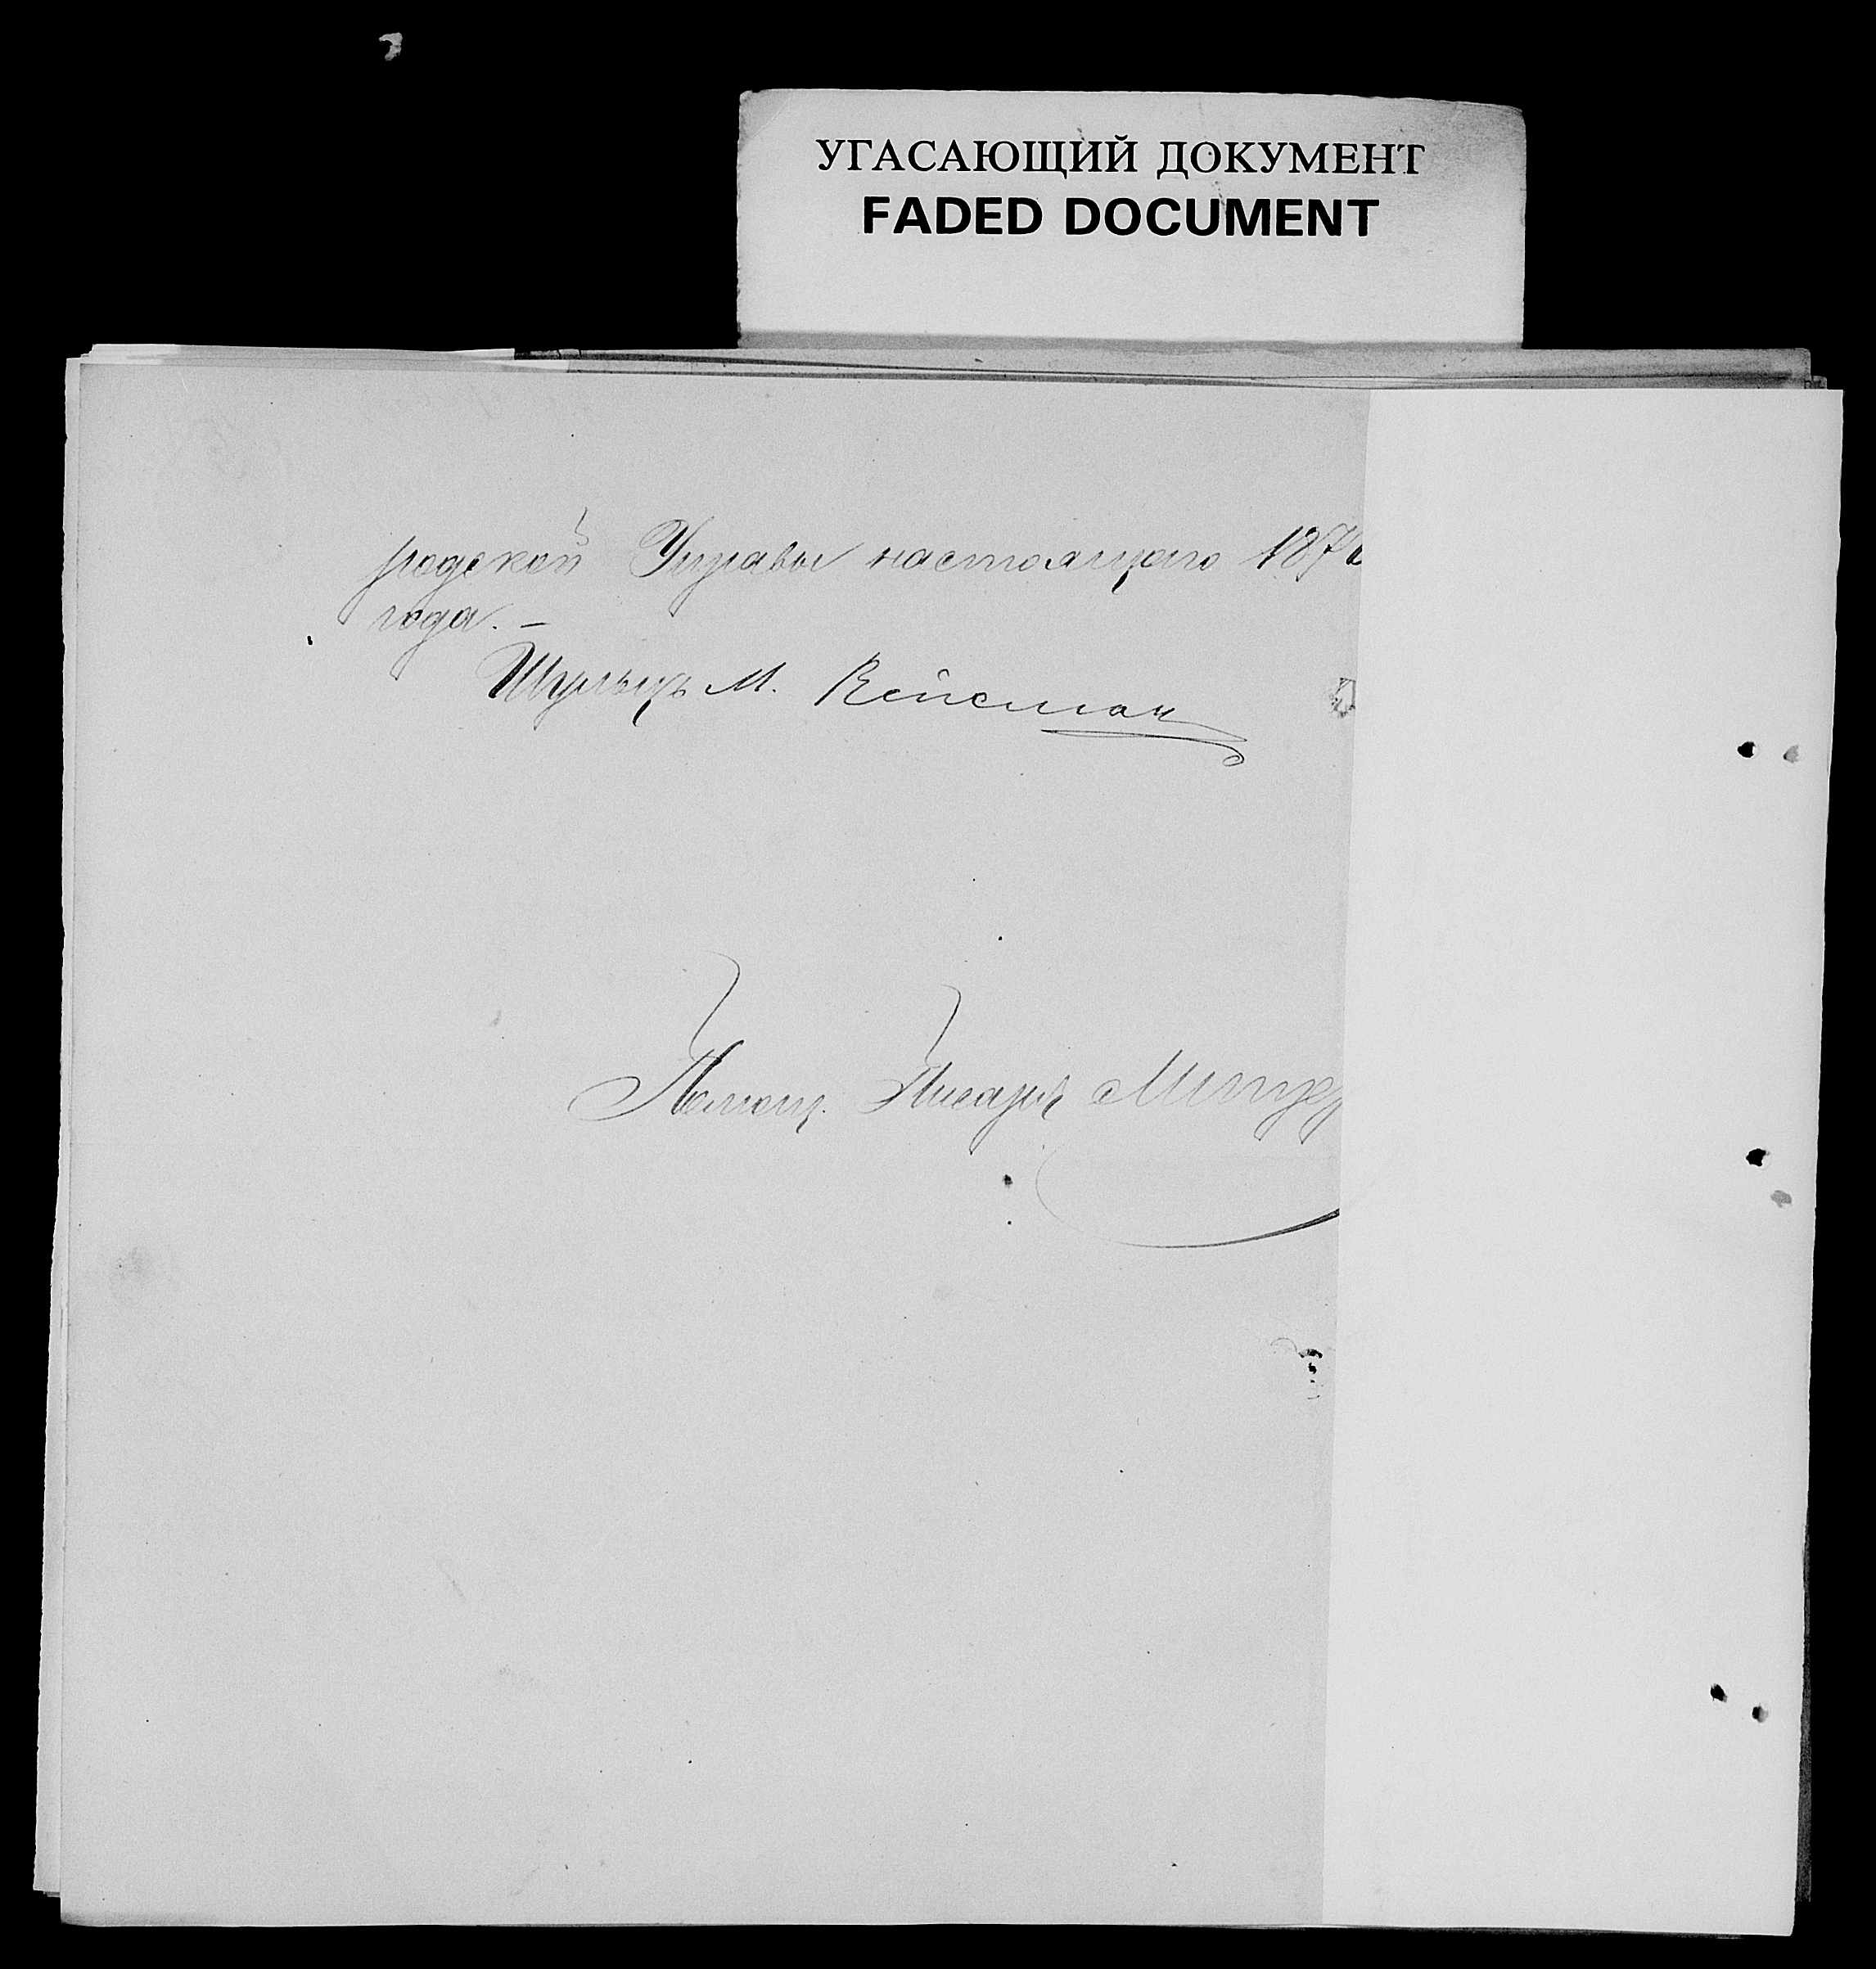 УГАСАЮЩИЙ ДОКУМЕНТ
FADED DOCUMENT
родской Управы настоящаго 187
года. –
Шульцъ М. Вейсман
Помощ. Писаря